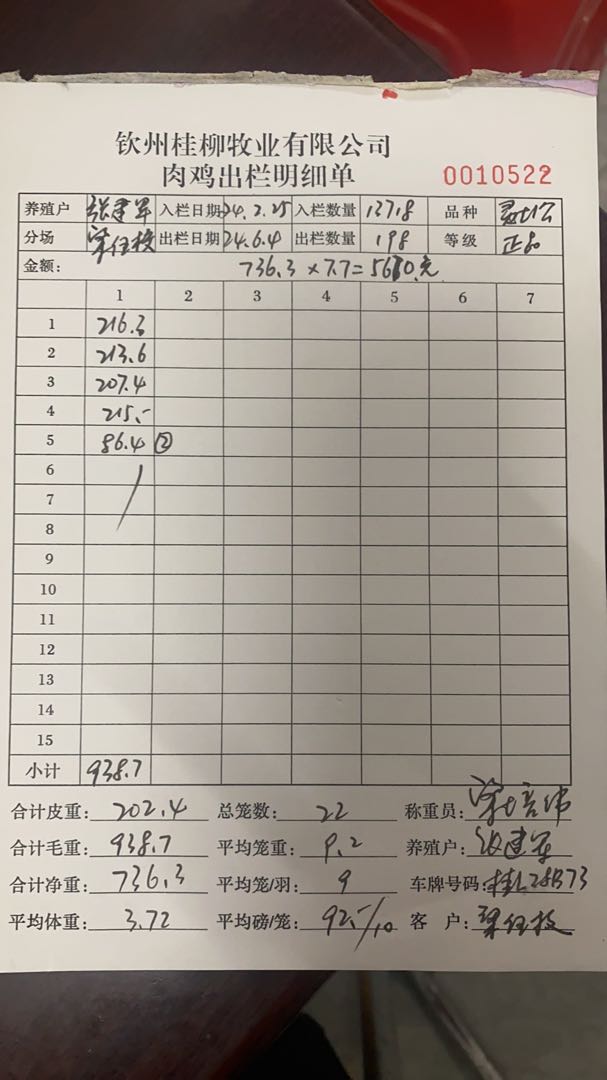 钦州桂柳牧业有限公司
肉鸡出栏明细单 0010522
养殖户 张建军 入栏日期 24.2.25 入栏数量 13718 品种
分场 出栏日期 24.6.4 出栏数量 198 等级 正品
金额: 736.3 × 7.7 = 5670.元
1 2 3 4 5 6 7
1 216.3
2 213.6
3 207.4
4 215.-
5 86.4 ②
6
7
8
9
10
11
12
13
14
15
小计 938.7
合计皮重: 202.4 总笼数: 22 称重员: 梁培伟
合计毛重: 938.7 平均笼重: 9.2 养殖户: 张建军
合计净重: 736.3 平均笼/羽: 9 车牌号码: 桂L28B73
平均体重: 3.72 平均磅/笼: 92.-/10 客 户: